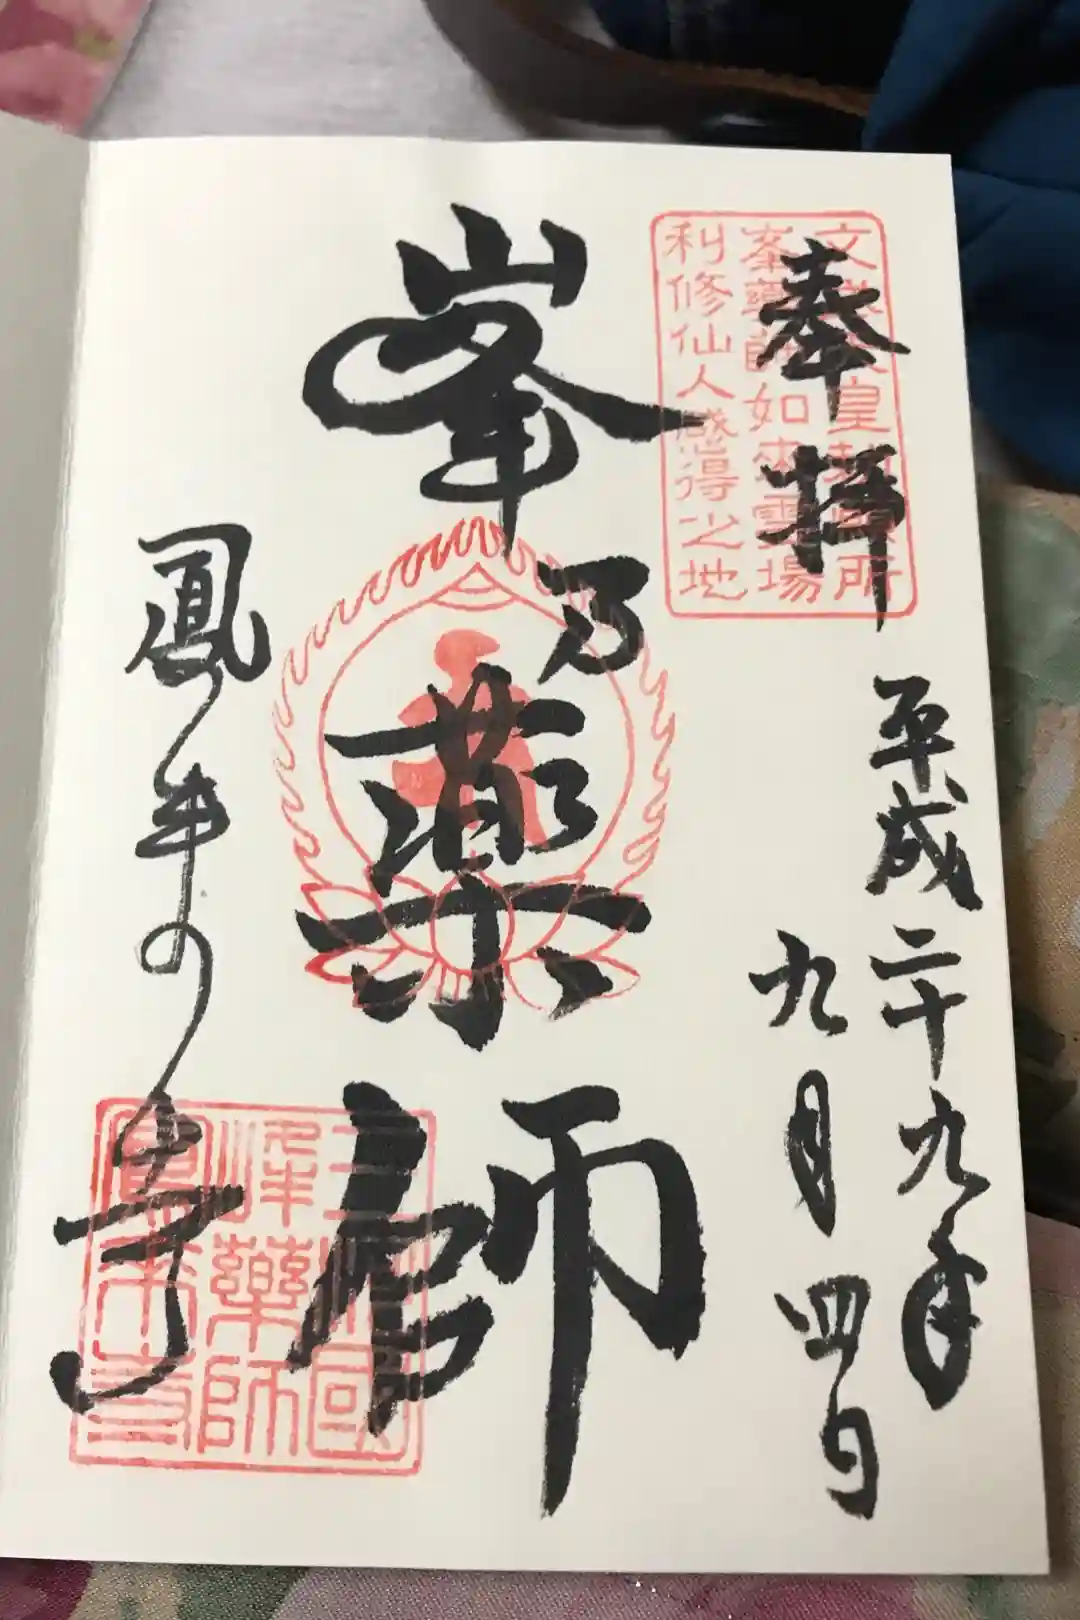 奉拝
平成二十九年
九月四日
文武天皇勅願所
峯藥師如來霊場
利修仙人感得之地
峯乃薬師
鳳来の寺
三河國
峰藥師
鳳来寺